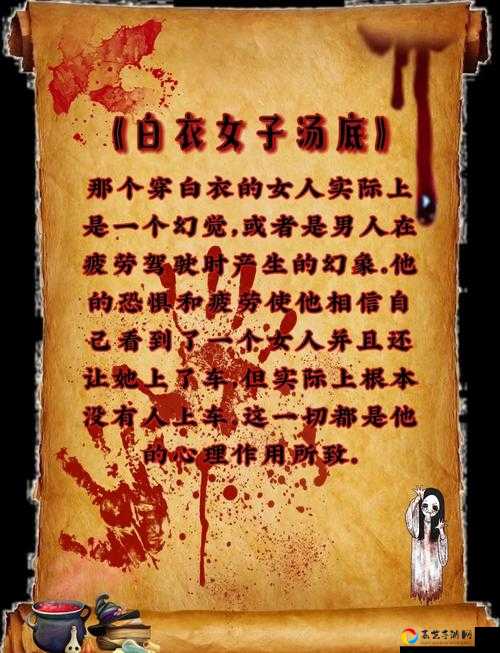 《白衣女子汤底》
那个穿白衣的女人实际上
是一个幻觉,或者是男人在
疲劳驾驶时产生的幻象.他
的恐惧和疲劳使他相信自
己看到了一个女人并且还
让她上了车.但实际上根本
没有人上车.这一切都是他
的心理作用所致.